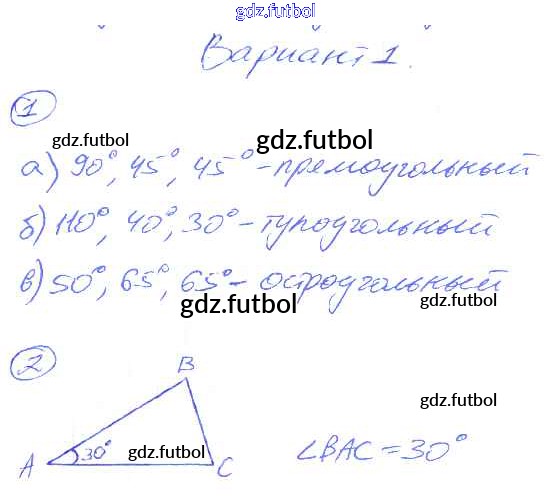 gdz.futbol
Вариант 1.
1
gdz.futbol gdz.futbol
а) 90°, 45°, 45° - премоугольный
б) 110°, 40°, 30° - тупоугольный
в) 50°, 65°, 65° - остроугольный
gdz.futbol gdz.futbol
2
B
gdz.futbol
A 30° gdz.futbol C ∠BAC = 30°